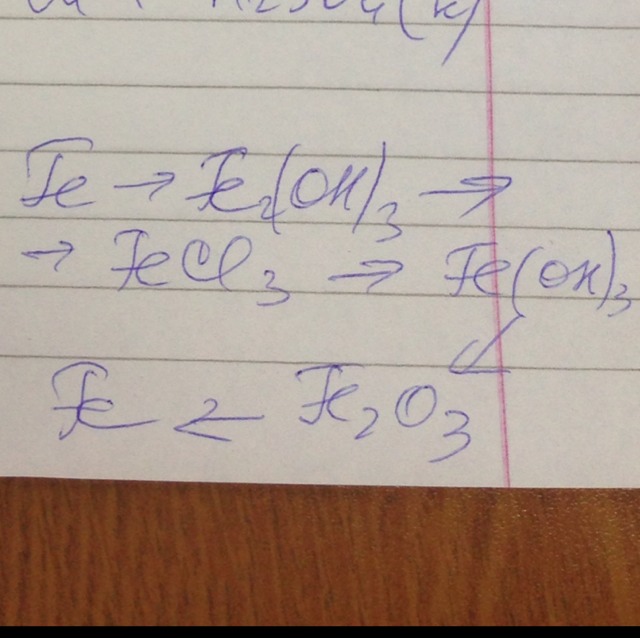 H2SO4(k)
Fe → Fe2(OH)3 →
→ FeCl3 → Fe(OH)3
Fe ← Fe2O3